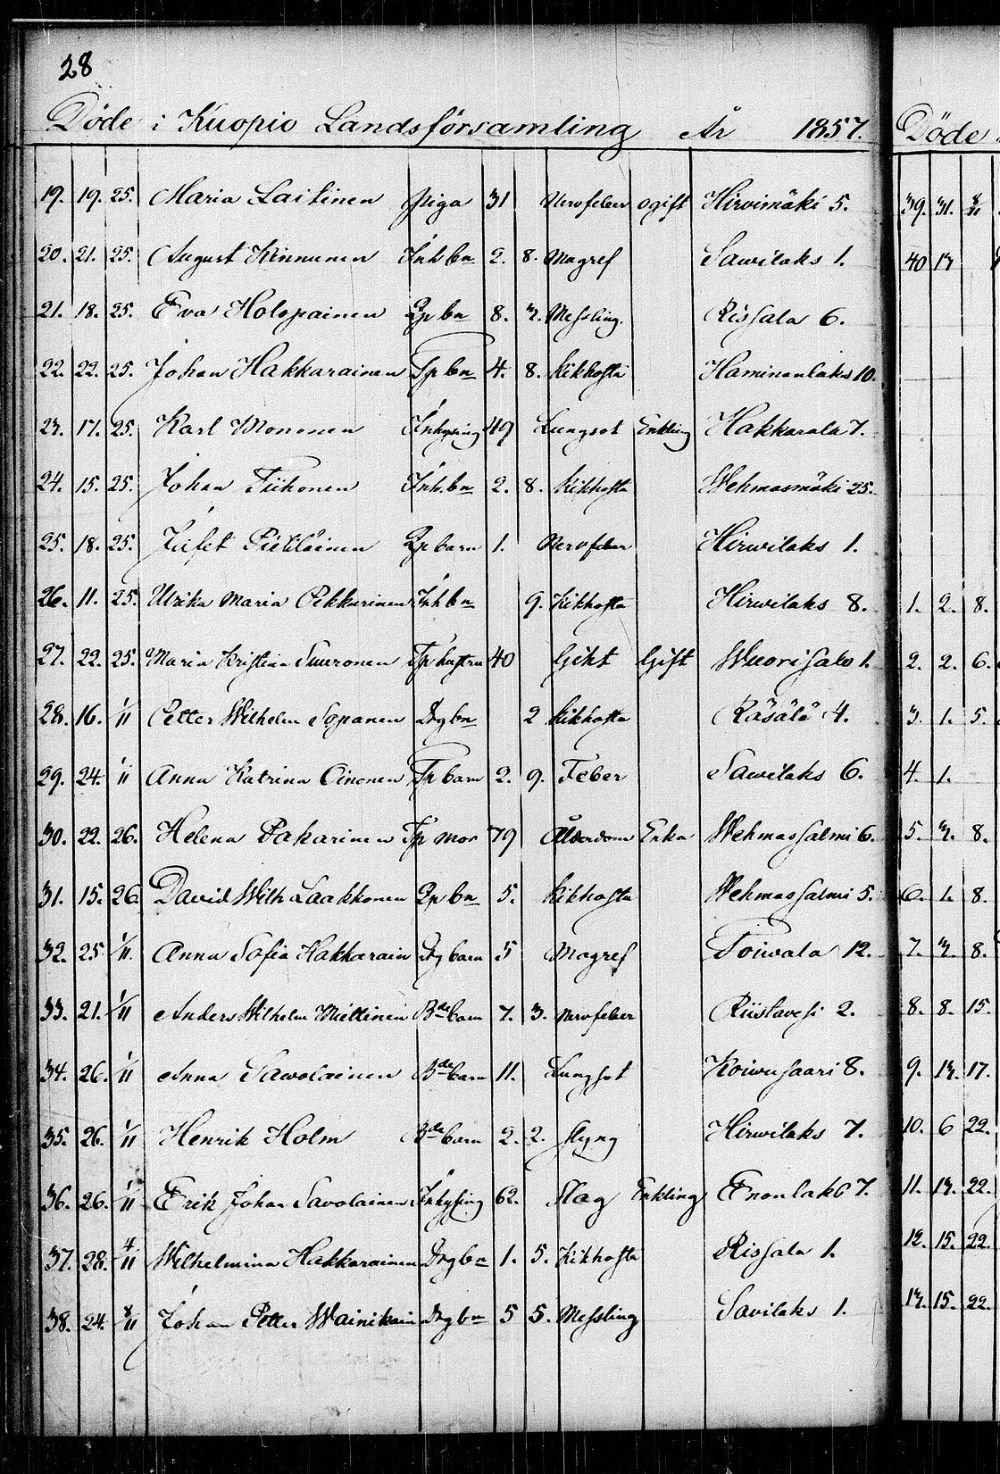 28
Döde i Kuopio Landsförsamling År 1857.
19. 19. 25. Maria Laitinen piga 31 Nervfeber ogift Hirvimäki 5.
20. 21. 25. August Kinnunen Inh.bn 2. 8. Magref Sawilaks 1.
21. 18. 25. Eva Holopainen bn 8. Messling. Rissala 6.
22. 22. 25. Johan Hakkarainen Tp bn 4. 8. Kikhosta Haminanlaks 10.
17. 25. Karl Mononen Inhysing 49 Lungsot Enkling Hakkarala 7.
24. 15. 25. Johan Tiihonen Inh.bn 2. 8. Kikhosta Wehmasmäki 25.
25. 18. 25. barn 1. Nervfeber Hirwilaks 1.
26. 11. 25. Ulrika Maria Pekkarinen Inh bn 9. Kikhosta Hirwilaks 8.
27. 22. 25. Maria Kristina Suuronen Tp hustru 40 Gikt Gift Wuorisalo 1.
28. 16. 1/11 Petter Wilhelm Sopanen Drg bn 2 Kikhosta Räsälä 4.
29. 24. 1/11 Anna Katrina Oinonen Tp barn 2. 9. Feber Sawilaks 6.
30. 22. 26. Helena Pakarinen Tp mor 79 Ålderdom Enka Wehmassalmi 6.
31. 15. 26. David Wilh Laakkonen bn 5. Kikhosta Wehmassalmi 5.
32. 25 1/11. Anna Sofia Hakkarain Drg barn 5 Magref Toivala 12.
33. 21. 1/11 Anders Wilhelm Miettinen Bde barn 7. 3. Nervfeber Riistavesi 2.
34. 26. 1/11 Anna Sawolainen Bde barn 11. Lungsot Koivusaari 8.
35. 26. 1/11 Henrik Holm Bde barn 2. 2. Styng Hirwilaks 7.
36. 26. 1/11 Erik Johan Savolainen Inhysing 62. Slag Enkling Enonlaks 7.
37. 28. 4/11 Wilhelmina Hakkarainen Drg bn 1. 5. Kikhosta Rissala 1.
38. 24. 8/11 Johan Petter Wainikain Drg bn 5 5. Messling Savilaks 1.
Döde
39. 31. 8/11
40
1. 2. 8.
2. 2. 6.
3. 1. 5.
4. 1.
5. 8.
6. 1. 8.
7. 8.
8. 8. 15.
9. 17.
10. 6 22.
11. 22.
12. 15. 22.
15. 22.